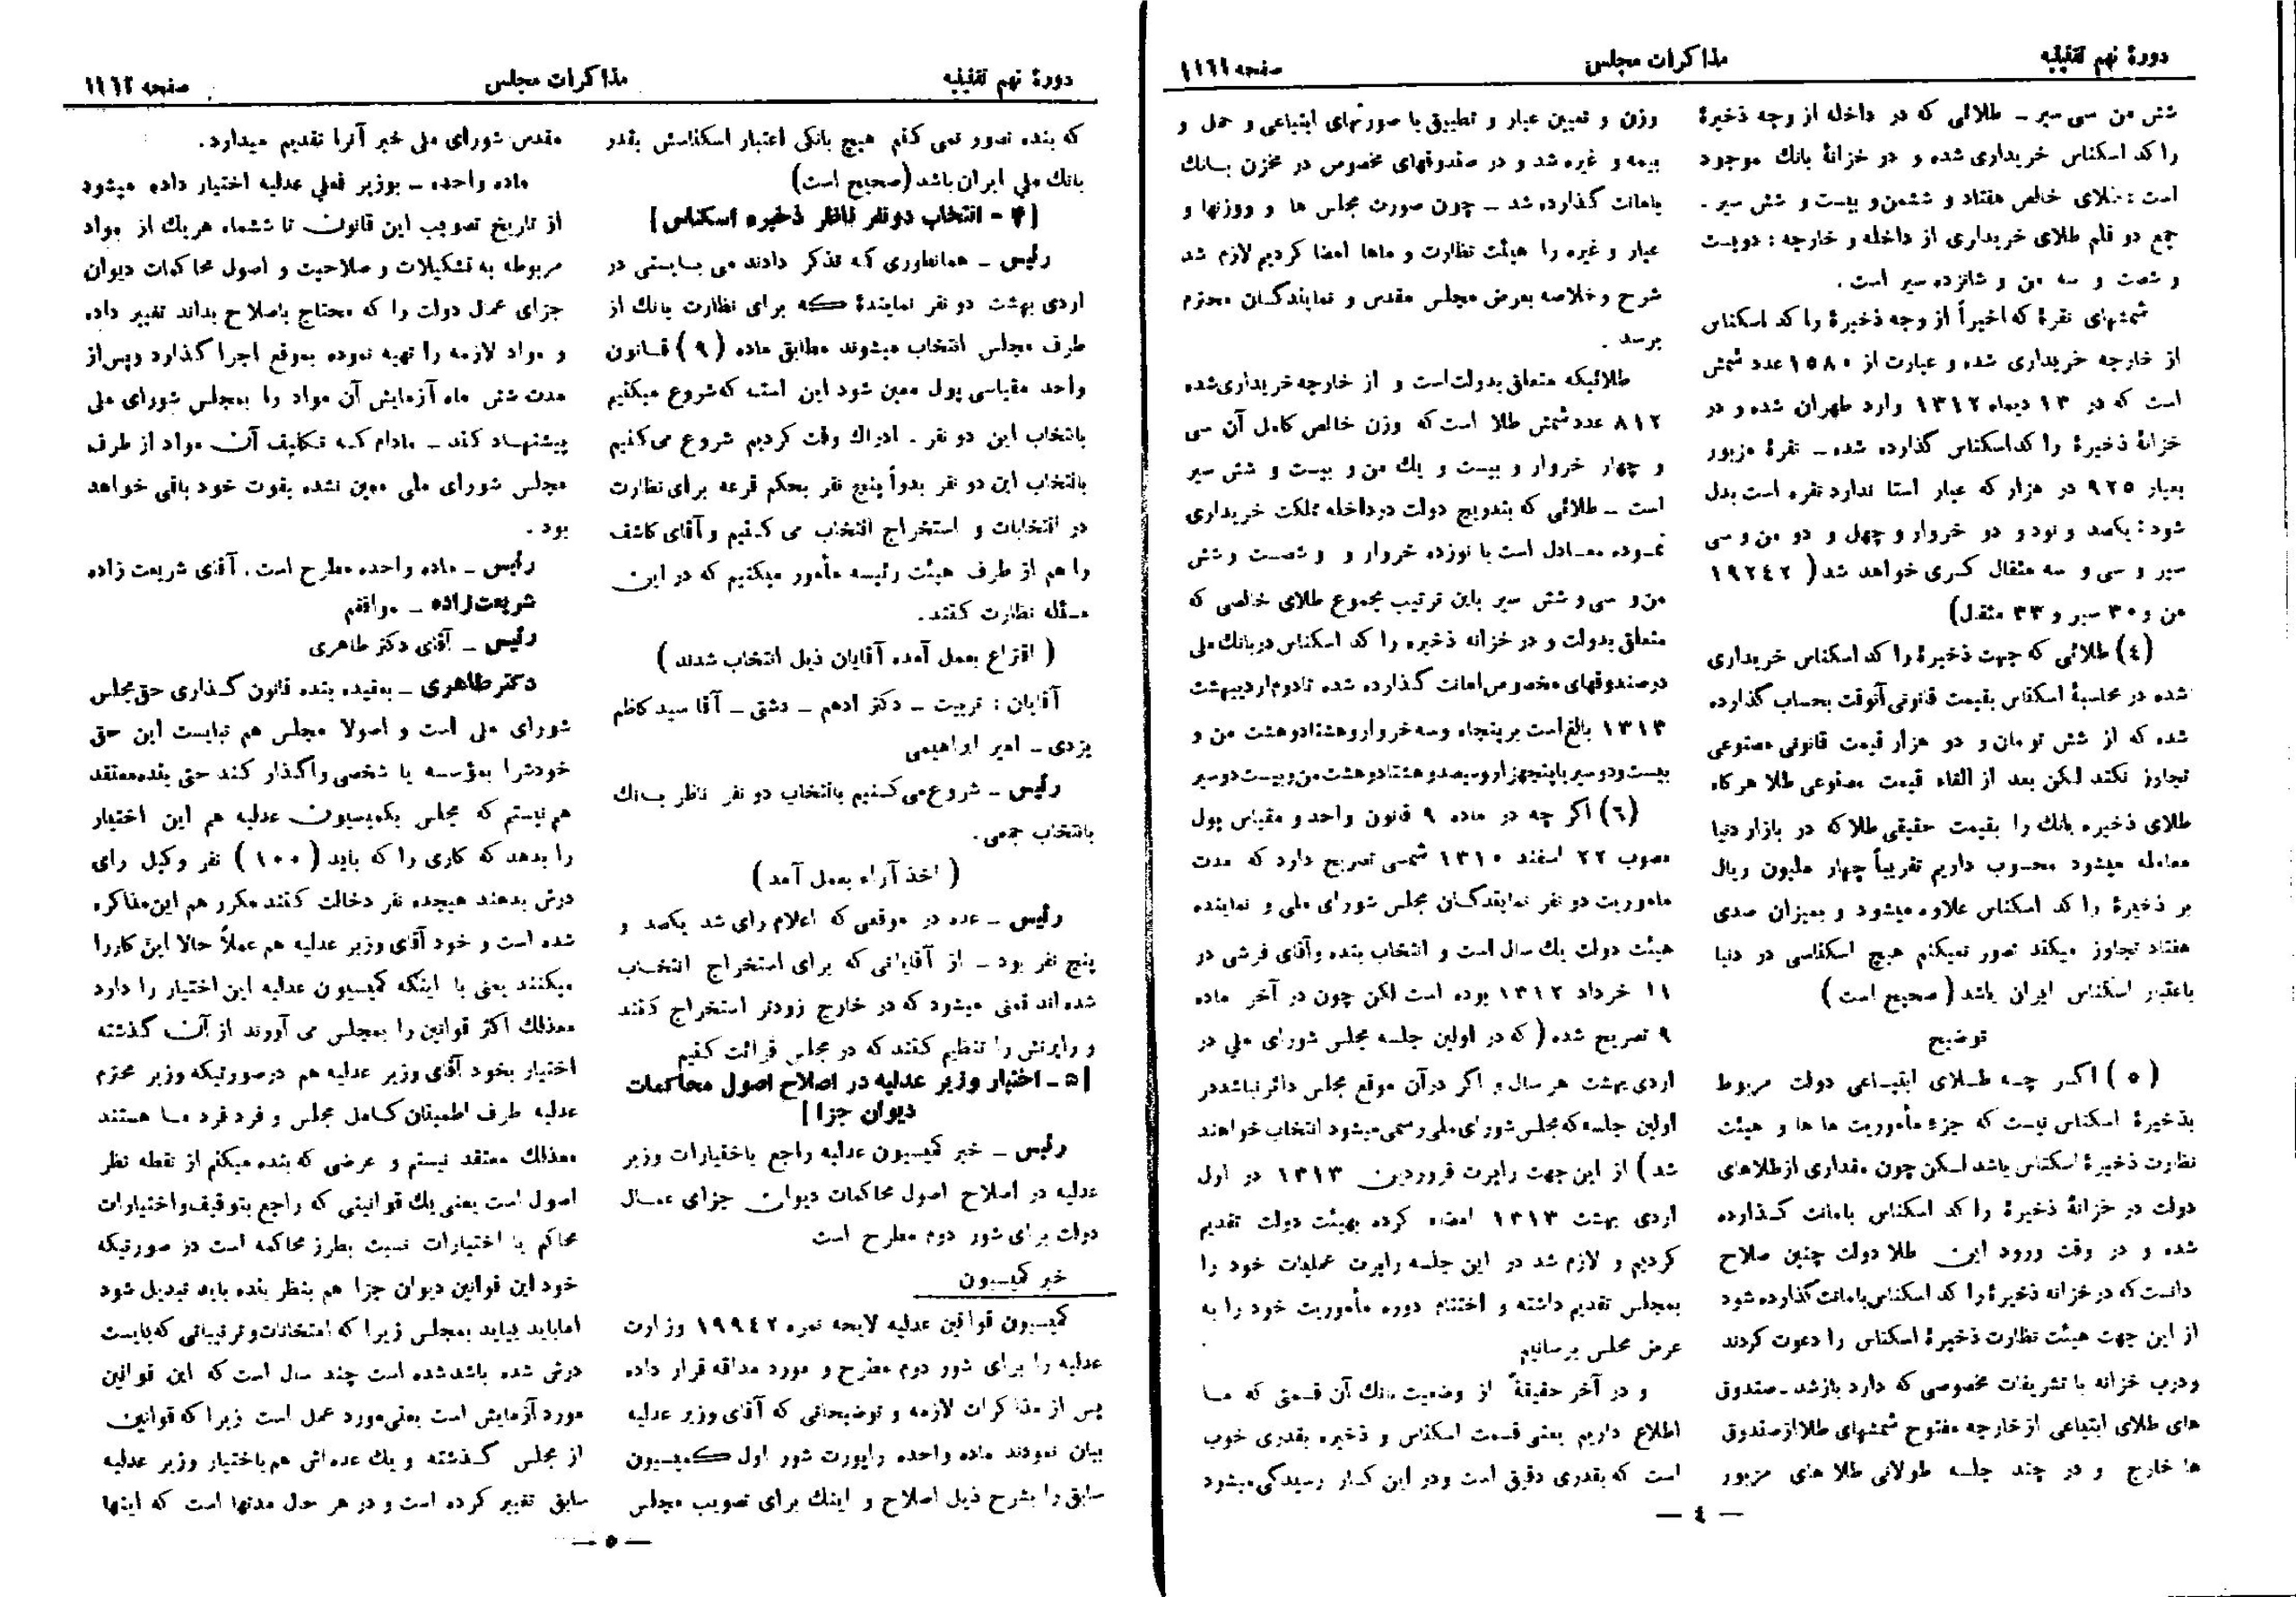 دورهٔ نهم تقنینیه
مذاکرات مجلس
صفحه ۱۱۶۱
شش من سی سیر ـ طلائی که در داخله از وجه ذخیرهٔ
راکد اسکناس خریداری شده و در خزانهٔ بانك موجود
است : طلای خالص هفتاد و ششمن و بیست و شش سیر .
جمع دو قلم طلای خریداری از داخله و خارجه : دویست
و شصت و سه من و شانزده سیر است .
شمشهای نقرهٔ که اخیراً از وجه ذخیرهٔ راکد اسکناس
از خارجه خریداری شده و عبارت از ۱۵۸۰ عدد شمش
است که در ۱۳ دیماه ۱۳۱۲ وارد طهران شده و در
خزانهٔ ذخیرهٔ راکد اسکناس گذارده شده ـ نقرهٔ مزبور
بعیار ۹۲۵ در هزار که عیار استا ندارد نقره است بدل
شود : یکصد و نود و دو خروار و چهل و دو من و سی
سیر و سی و سه مثقال کسری خواهد شد ( ۱۹۲۴۲
من و ۳۰ سیر و ۳۳ مثقل)
(۴) طلائی که جهت ذخیرهٔ راکد اسکناس خریداری
شده در محاسبهٔ اسکناس بقیمت قانونی آنوقت بحساب گذارده
شده که از شش تومان و دو هزار قیمت قانونی مصنوعی
تجاوز نکند لکن بعد از الغاء قیمت مصنوعی طلا هر گاه
طلای ذخیره بانك را بقیمت حقیقی طلا که در بازار دنیا
معامله میشود محسوب داریم تقریباً چهار ملیون ریال
بر ذخیرهٔ راکد اسکناس علاوه میشود و بمیزان صدی
هفتاد تجاوز میکند تصور نمیکنم هیچ اسکناسی در دنیا
باعتبار اسکناس ایران باشد ( صحیح است )
توضیح
( ۵ ) اگر چه طلای ابتیاعی دولت مربوط
بذخیرهٔ اسکناس نیست که جزء مأموریت ما ها و هیئت
نظارت ذخیرهٔ اسکناس باشد لکن چون مقداری از طلاهای
دولت در خزانهٔ ذخیرهٔ راکد اسکناس بامانت گذارده
شده و در وقت ورود این طلا دولت چنین صلاح
دانست که در خزانه ذخیرهٔ راکد اسکناس بامانت گذارده شود
از این جهت هیئت نظارت ذخیرهٔ اسکناس را دعوت کردند
ودرب خزانه با تشریفات مخصوصی که دارد باز شد ـ صندوق
های طلای ابتیاعی از خارجه مفتوح شمشهای طلا از صندوق
ها خارج و در چند جلسه طولانی طلا های مزبور
وزن و تعیین عیار و تطبیق با صورتهای ابتیاعی و حمل و
بیمه و غیره شد و در صندوقهای مخصوص در مخزن بانك
بامانت گذارده شد ـ چون صورت مجلس ها و وزنها و
عیار و غیره را هیئت نظارت و ماها امضا کردیم لازم شد
شرح و خلاصه بعرض مجلس مقدس و نمایندگان محترم
برسد .
طلائیکه متعلق بدولت است و از خارجه خریداری شده
۸۱۲ عدد شمش طلا است که وزن خالص کامل آن سی
و چهار خروار و بیست و یك من و بیست و شش سیر
است ـ طلائی که بتدویج دولت در داخله مملکت خریداری
نموده معادل است با نوزده خروار و و شصت و شش
من و سی و شش سیر باین ترتیب مجموع طلای خالصی که
متعلق بدولت و در خزانه ذخیره راکد اسکناس در بانك ملی
در صندوقهای مخصوص امانت گذارده شده تا دوم اردیبهشت
۱۳۱۳ بالغ است بر پنجاه و سه خروار و هشتاد و هشت من و
بیست و دو سیر یا پنجهزار و سیصد و هشتاد و هشت من و بیست دو سیر
(۶) اگر چه در ماده ۹ قانون واحد و مقیاس پول
مصوب ۲۲ اسفند ۱۳۱۰ شمسی تصریح دارد که مدت
ماموریت دو نفر نمایندگان مجلس شورای ملی و نماینده
هیئت دولت یك سال است و انتخاب بنده و آقای فرشی در
۱۱ خرداد ۱۳۱۲ بوده است لکن چون در آخر ماده
۹ تصریح شده ( که در اولین جلسه مجلس شورای ملی در
اردی بهشت هر سال و اگر در آن موقع مجلس دائر نباشد در
اولین جلسه که مجلس شورای ملی رسمی میشود انتخاب خواهند
شد ) از این جهت راپرت فروردین ۱۳۱۳ در اول
اردی بهشت ۱۳۱۳ امضاء کرده بهیئت دولت تقدیم
کردیم و لازم شد در این جلسه راپرت عملیات خود را
بمجلس تقدیم داشته و اختتام دوره مأموریت خود را به
عرض مجلس برسانیم
و در آخر حقیقةً از وضعیت بانك آن قسمتی که ما
اطلاع داریم یعنی قسمت اسکناس و ذخیره بقدری خوب
است که بقدری دقیق است و در این کار رسیدگی میشود
— ۴ —
دورهٔ نهم تقنینیه
مذاکرات مجلس
صفحه ۱۱۶۲
که بنده تصور نمی کنم هیچ بانکی اعتبار اسکناسش بقدر
بانك ملی ایران باشد (صحیح است)
[ ۴ - انتخاب دو نفر ناظر ذخیره اسکناس ]
رئیس ـ همانطوری که تذکر دادند می بایستی در
اردی بهشت دو نفر نمایندهٔ که برای نظارت بانك از
طرف مجلس انتخاب میشوند مطابق ماده (۹) قانون
واحد مقیاسی پول معین شود این است که شروع میکنیم
بانتخاب این دو نفر . ادراك وقت کردیم شروع می کنیم
بانتخاب این دو نفر بدواً پنج نفر بحکم قرعه برای نظارت
در انتخابات و استخراج انتخاب می کنیم و آقای کاشف
را هم از طرف هیئت رئیسه مأمور میکنیم که در این
مسئله نظارت کنند .
( اقتراع بعمل آمده آقایان ذیل انتخاب شدند )
آقایان : تربیت ـ دکتر ادهم ـ دشتی ـ آقا سید کاظم
یزدی ـ امیر ابراهیمی
رئیس ـ شروع می کنیم بانتخاب دو نفر ناظر بانك
بانتخاب جمعی .
( اخذ آراء بعمل آمد )
رئیس ـ عده در موقعی که اعلام رای شد یکصد و
پنج نفر بود ـ از آقایانی که برای استخراج انتخاب
شده اند تمنی میشود که در خارج زودتر استخراج کنند
و راپرتش را تنظیم کنند که در مجلس قرائت کنیم
[ ۵ ـ اختیار وزیر عدلیه در اصلاح اصول محاکمات
دیوان جزا ]
رئیس ـ خبر کمیسیون عدلیه راجع باختیارات وزیر
عدلیه در اصلاح اصول محاکمات دیوان جزای عمال
دولت برای شور دوم مطرح است
خبر کمیسیون
کمیسیون قوانین عدلیه لایحه نمره ۱۹۹۴۲ وزارت
عدلیه را برای شور دوم مطرح و مورد مداقه قرار داده
پس از مذاکرات لازمه و توضیحاتی که آقای وزیر عدلیه
بیان نمودند ماده واحده راپورت شور اول کمیسیون
سابق را بشرح ذیل اصلاح و اینك برای تصویب مجلس
مقدس شورای ملی خبر آنرا تقدیم میدارد .
ماده واحده ـ بوزیر فعلی عدلیه اختیار داده میشود
از تاریخ تصویب این قانون تا ششماه هر یك از مواد
مربوطه به تشکیلات و صلاحیت و اصول محاکمات دیوان
جزای عمال دولت را که محتاج باصلاح بداند تغییر داده
و مواد لازمه را تهیه نموده بموقع اجرا گذارد و پس از
مدت شش ماه آزمایش آن مواد را بمجلس شورای ملی
پیشنهاد کند ـ مادام که تکلیف آن مواد از طرف
مجلس شورای ملی معین نشده بقوت خود باقی خواهد
بود .
رئیس ـ ماده واحده مطرح است . آقای شریعت زاده
شریعت زاده ـ موافقم
رئیس ـ آقای دکتر طاهری
دکتر طاهری ـ بعقیده بنده قانون گذاری حق مجلس
شورای ملی است و اصولا مجلس هم نبایست این حق
خودش را بمؤسسه یا شخصی واگذار کند حتی بنده معتقد
هم نیستم که مجلس بکمیسیون عدلیه هم این اختیار
را بدهد که کاری را که باید ( ۱۰۰ ) نفر وکیل رای
درش بدهند هیجده نفر دخالت کنند مکرر هم این مذاکره
شده است و خود آقای وزیر عدلیه هم عملاً حالا این کار را
میکنند یعنی با اینکه کمیسیون عدلیه این اختیار را دارد
معذلك اکثر قوانین را بمجلس می آورند از آن گذشته
اختیار بخود آقای وزیر عدلیه هم در صورتیکه وزیر محترم
عدلیه طرف اطمینان کامل مجلس و فرد فرد ما هستند
معذلك معتقد نیستم و عرضی که بنده میکنم از نقطه نظر
اصول است یعنی یك قوانینی که راجع بتوقیف و اختیارات
محاکم یا اختیارات نسبت بطرز محاکمه است در صورتیکه
خود این قوانین دیوان جزا هم بنظر بنده باید تبدیل شود
اما باید بیاید بمجلس زیرا که امتحانات و ترتیباتی که بایست
درش شده باشد شده است چند سال است که این قوانین
مورد آزمایش است یعنی مورد عمل است زیرا که قوانین
از مجلس گذشته و یك عده اش هم باختیار وزیر عدلیه
سابق تغییر کرده است و در هر حال مدتها است که اینها
— ۵ —